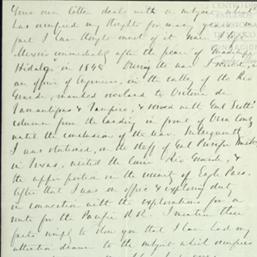 Your own letter deals with a subject
has occupied my thoughts for many years
I had thought most of it was
Mexico immediately after the peace of Guadalupe
Hidalgo" in 1848. During the war I
an officer of Engineers, in the valley of the Rio
Grande, marched overland to Victoria de
Tamaulipas & Tampico, & moved with Genl Scott's
column from the landing in front of Vera Cruz
until the conclusion of the war. Subsequently
I was stationed, on the staff of Genl
in Texas, visited the Rio Grande, &
the upper portion in the vicinity of Eagle Pass.
After that I was on office & exploring duty
in connection with the explorations for a
route for the Pacific R.R. I mention these
facts simply to show you that I have had my
attention drawn to the subject which occupies